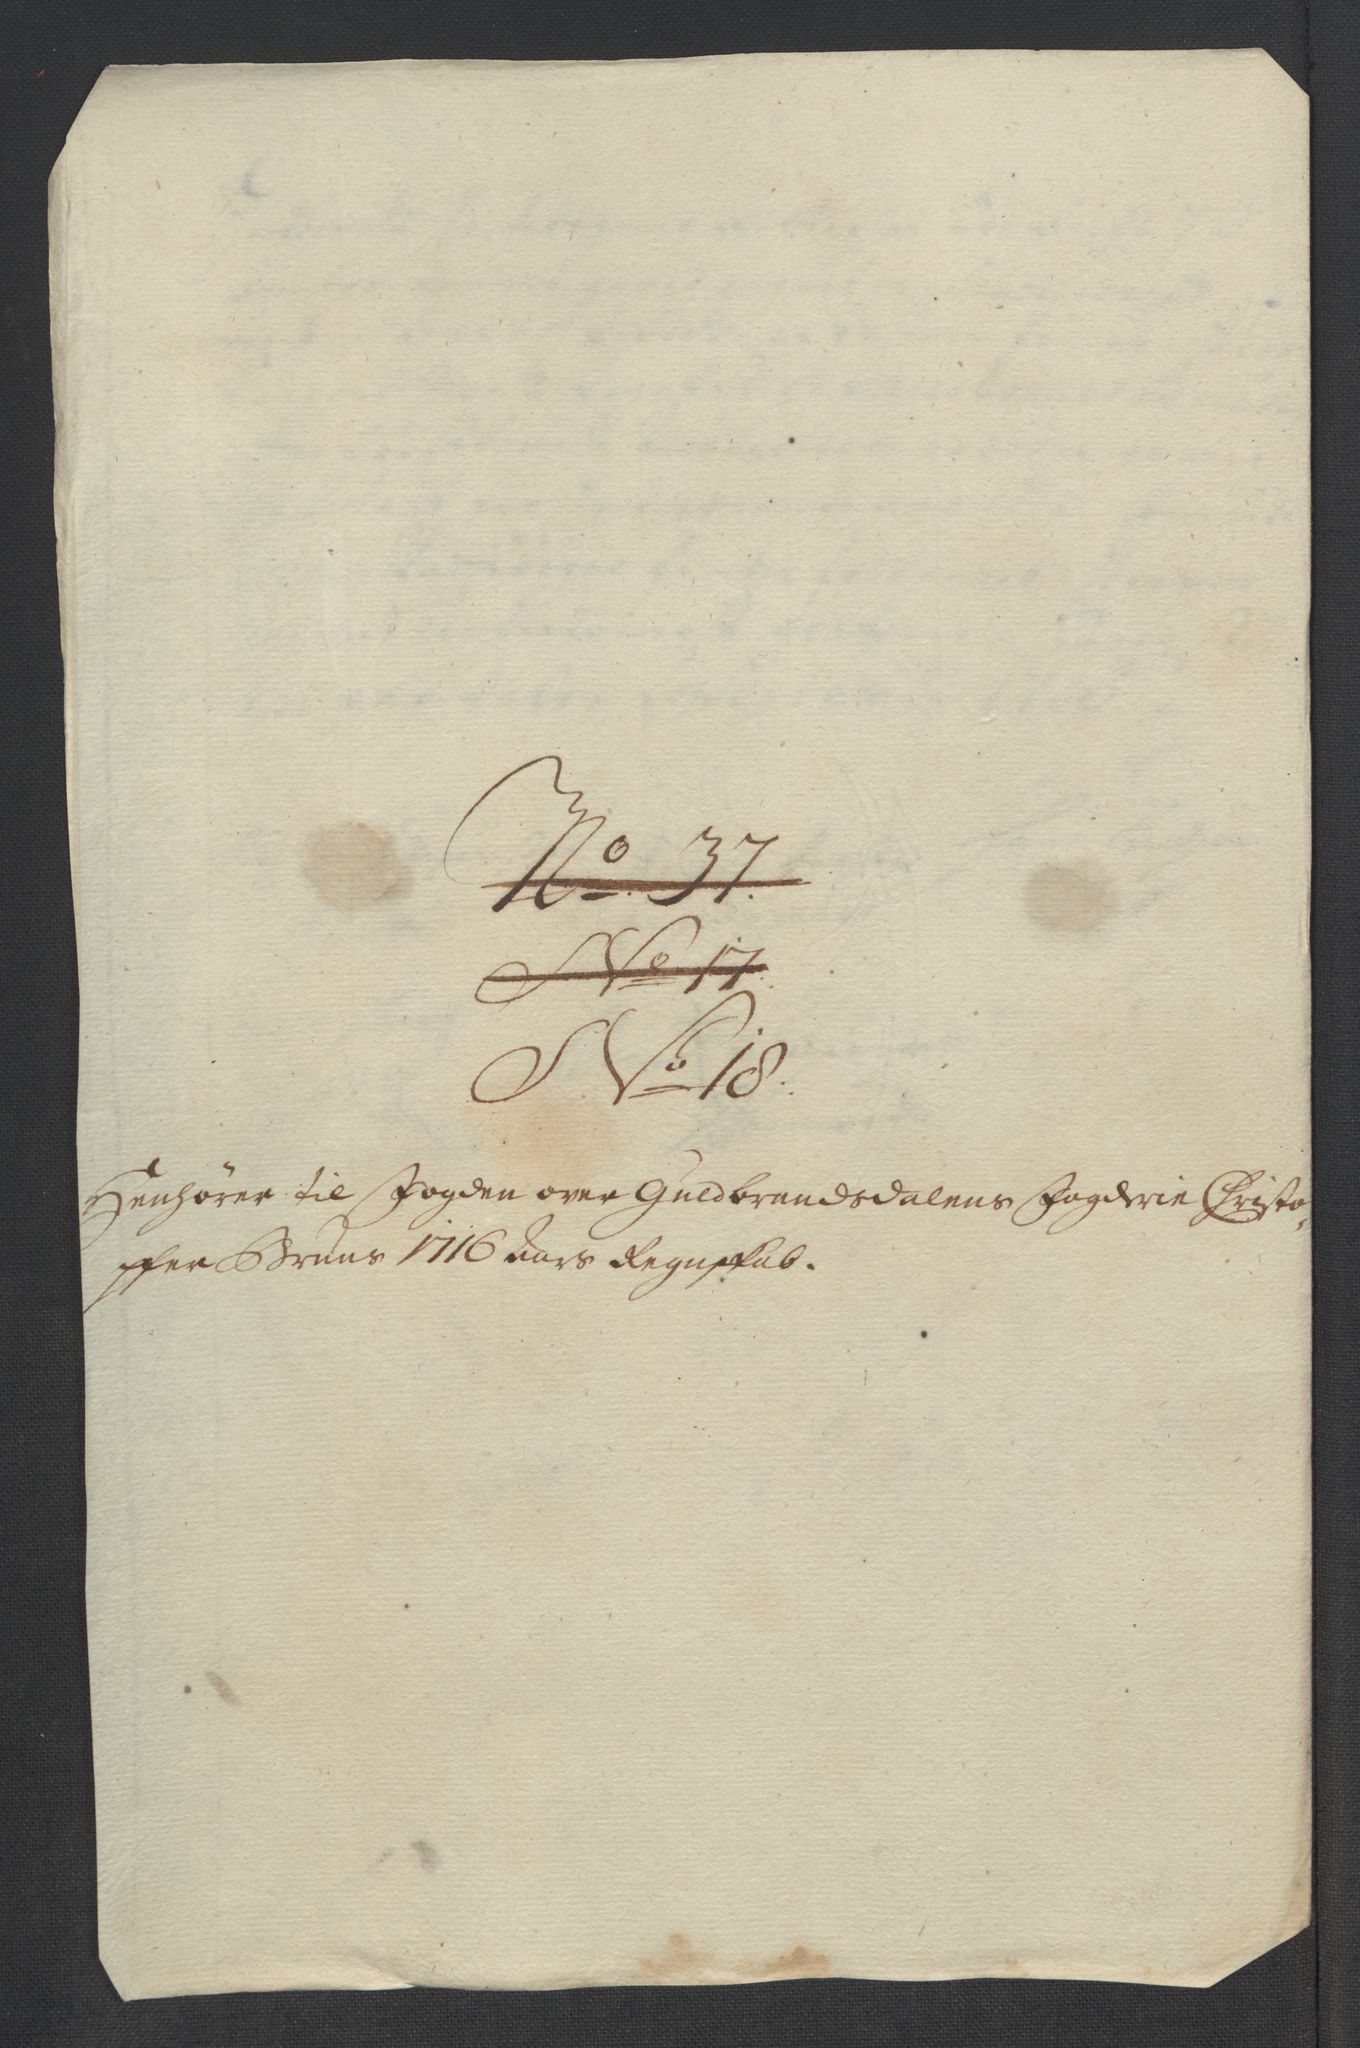 No. 37.
No. 17.
No. 18.
Henhører til Fogden over Guldbrandsdalens Fogderie Christo-
pher Bruns 1716 Aars Regnskab.